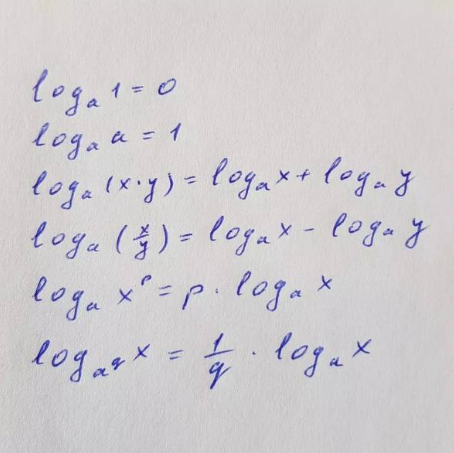 logₐ 1 = 0
logₐ a = 1
logₐ (x·y) = logₐ x + logₐ y
logₐ (x/y) = logₐ x - logₐ y
logₐ xᵖ = p · logₐ x
log_{a^q} x = 1/q · logₐ x